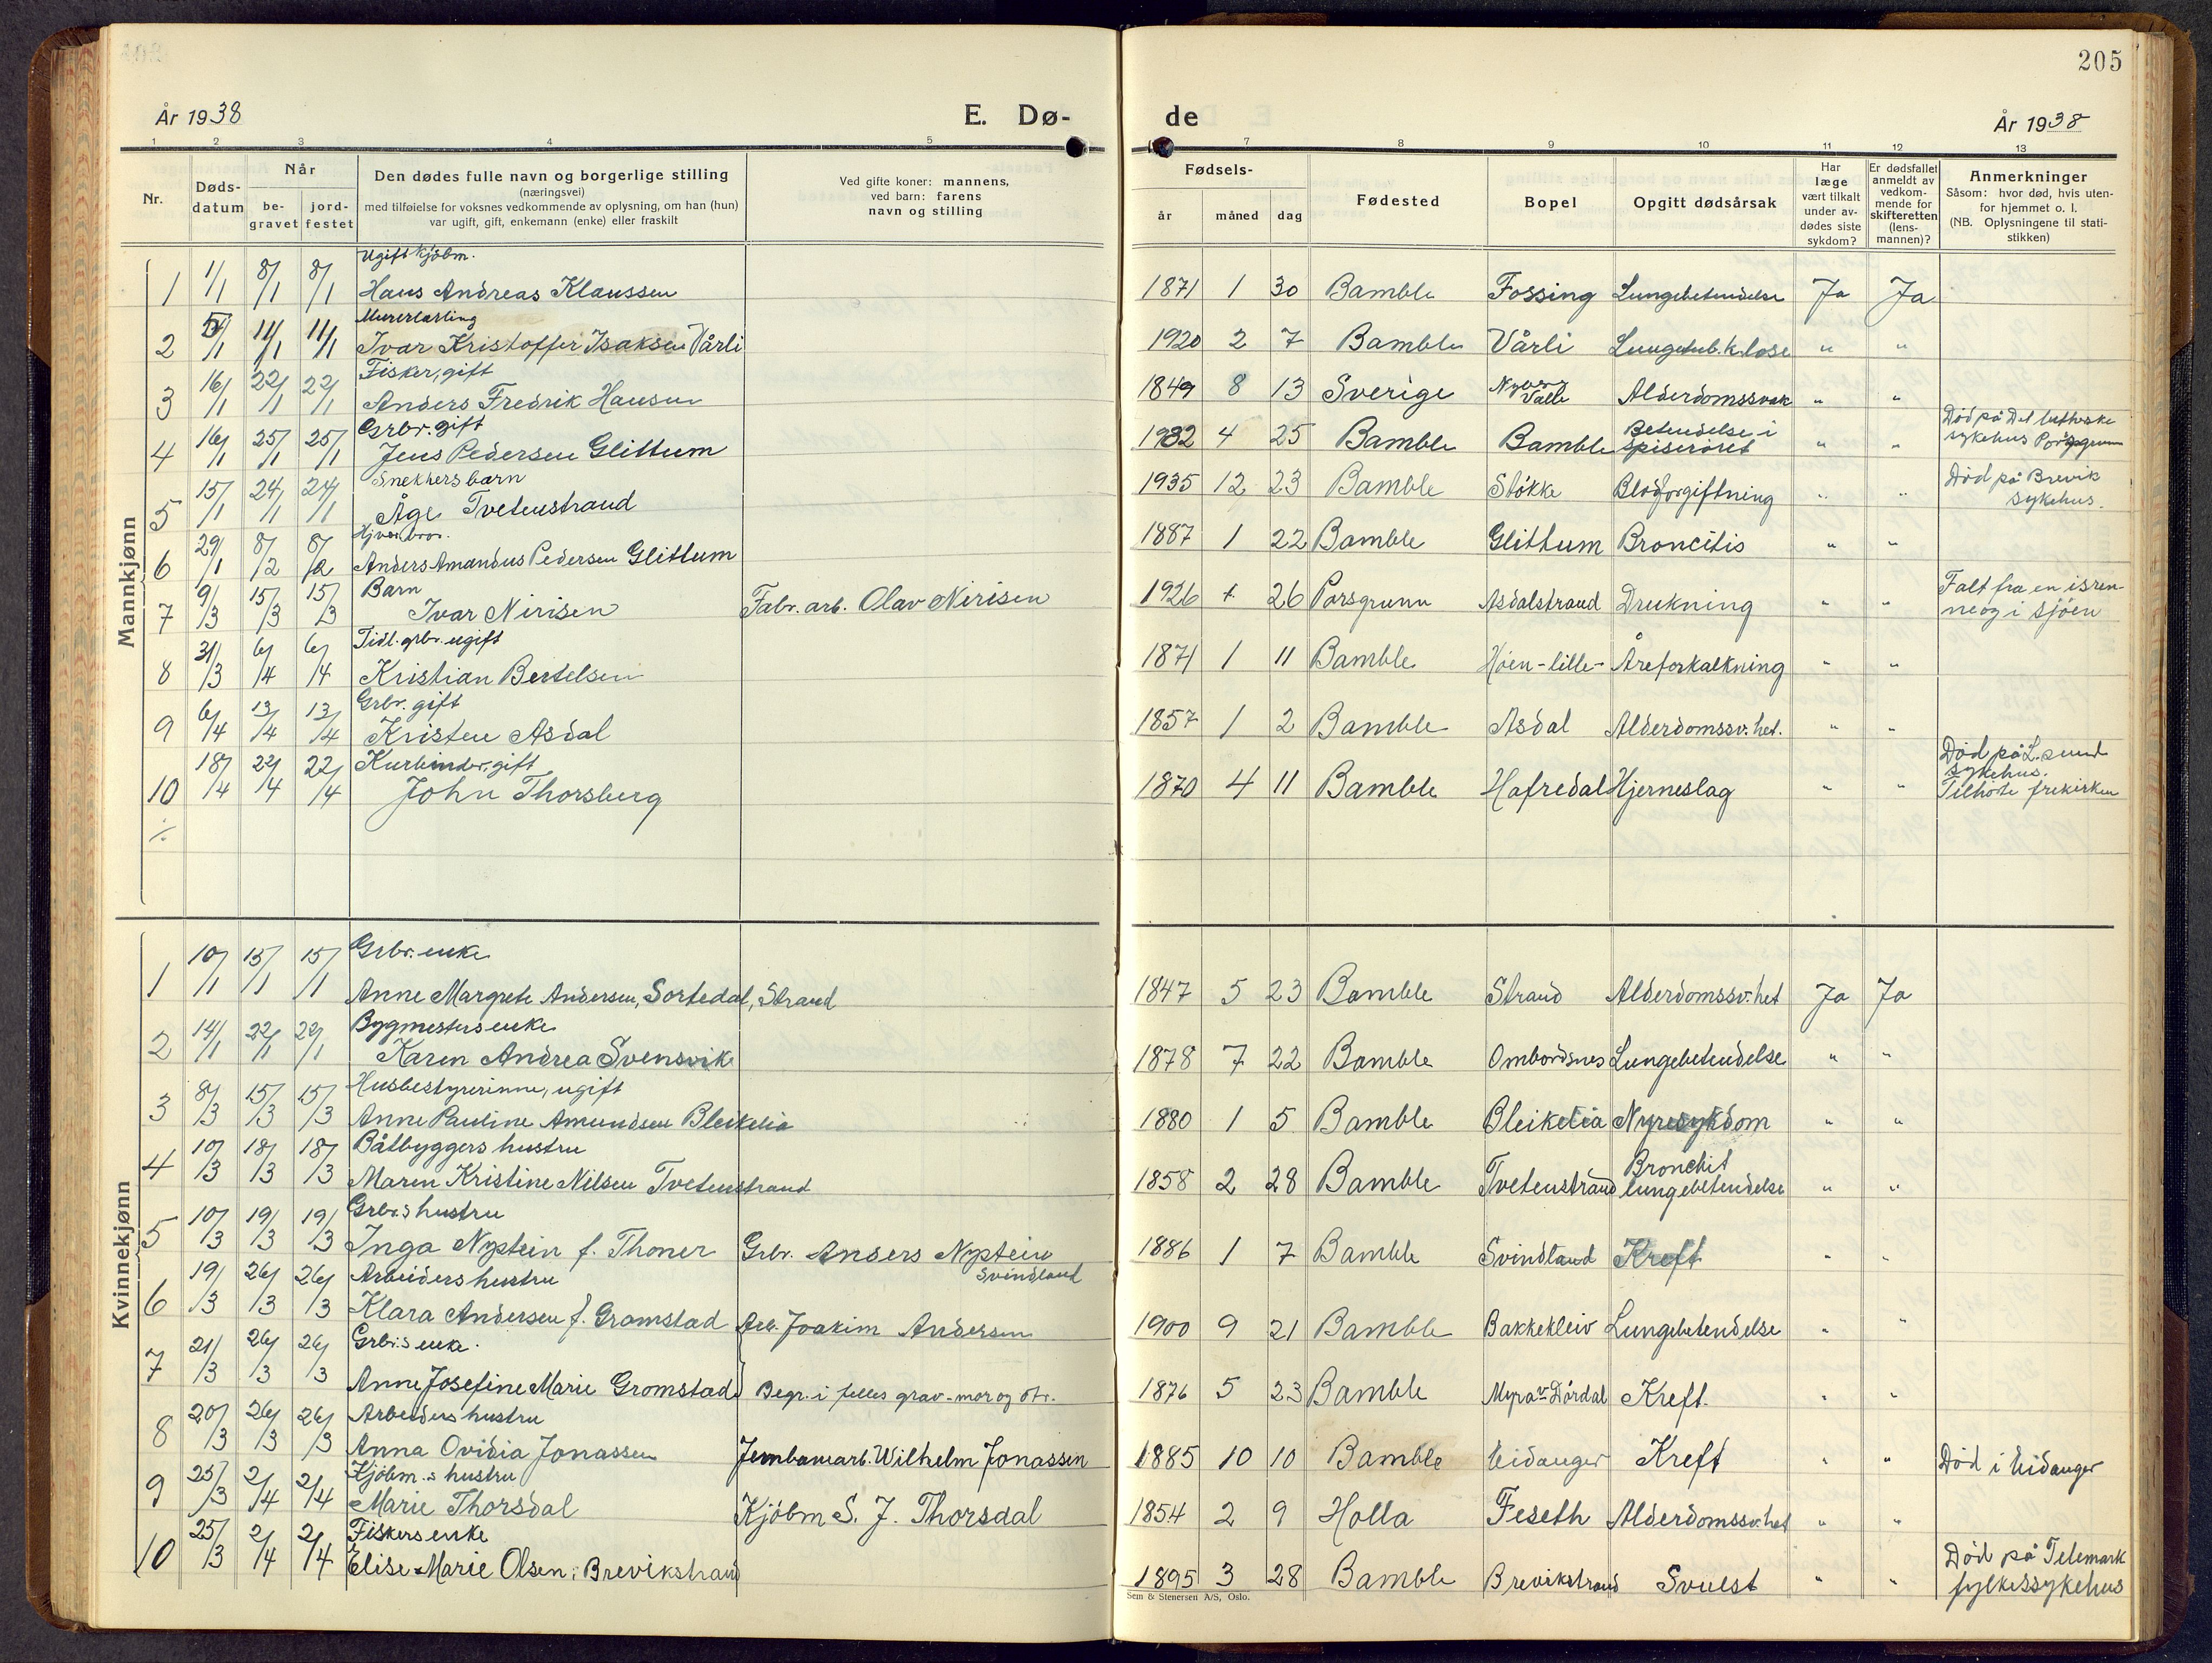 205
År 1938
E. Dø-
de
År 1938
1 2 3 4 5 7 8 9 10 11 12 13
Nr.
Døds-
datum
Når
be-
gravet
jord-
festet
Den dødes fulle navn og borgerlige stilling
(næringsvei)
med tilføielse for voksnes vedkommende av oplysning, om han (hun)
var ugift, gift, enkemann (enke) eller fraskilt
Ved gifte koner: mannens,
ved barn: farens
navn og stilling
Fødsels-
år måned dag
Fødested
Bopel
Opgitt dødsårsak
Har
læge
vært tilkalt
under av-
dødes siste
sykdom?
Er dødsfallet
anmeldt av
vedkom-
mende for
skifteretten
(lens-
mannen)?
Anmerkninger
Såsom: hvor død, hvis uten-
for hjemmet o. l.
(NB. Oplysningene til stati-
stikken)
Mannkjønn
Ugift kjøbm.
1 1/1 8/1 8/1 Hans Andreas Klaussen 1871 1 30 Bamble Fossing Lungebetendelse Ja Ja
Murerlærling
2 5/1 11/1 11/1 Ivar Kristoffer Isaksen Vårli 1920 2 7 Bamble Vårli Lungetub.k.lose " "
Fisker, gift
3 16/1 22/1 22/1 Anders Fredrik Hansen 1849 8 13 Sverige Valle Alderdomssvak " "
Grbr. gift
4 16/1 25/1 25/1 Jens Pedersen Glittum 1932 4 25 Bamble Bamble Betendelse i spiserøret " " Død på Det lutherske sykehus Porsgrunn
Snekkers barn
5 15/1 24/1 24/1 Åge Tvetenstrand 1935 12 23 Bamble Stokke Blodforgiftning " " Død på Brevik sykehus.
6 29/1 8/2 8/2 Anders Amandus Pedersen Glittum 1887 1 22 Bamble Glittum Broncitis " "
Barn
7 9/3 15/3 15/3 Ivar Nirisen Fabr. arb. Olav Nirisen 1926 26 Porsgrunn Asdalstrand Drukning " " Falt fra en isren- ne og i sjöen
Tidl. grbr. ugift
8 31/3 6/4 6/4 Kristian Bertelsen 1871 1 11 Bamble Høen-lille- Åreforkalkning " "
Grbr. gift
9 6/4 13/4 13/4 Kristen Asdal 1857 1 2 Bamble Asdal Alderdomssv.het. " "
Kurvbinder, gift
10 18/4 22/4 22/4 John Thorsberg 1870 4 11 Bamble Hafredal Hjerneslag " " Död på L.sund sykehus. Tilhörte frikirken
÷
Kvinnekjønn
Grbr. enke
1 10/1 15/1 15/1 Anne Margrete Andersen, Sortedal, Strand 1847 5 23 Bamble Strand Alderdomssv.het Ja Ja
Bygmesters enke
2 14/1 22/1 22/1 Karen Andrea Svensvik 1878 7 22 Bamble Ombordsnes Lungebetendelse " "
Husbestyrerinne, ugift
3 8/3 15/3 15/3 Anne Pauline Amundsen Bleikelia 1880 1 5 Bamble Bleikelia Nyresykdom " "
Båtbyggers hustru
4 10/3 18/3 18/3 Maren Kristine Nilsen Tvetenstrand 1858 2 28 Bamble Tvetenstrand Bronchit lungebetendelse " "
Grbr.s hustru
5 10/3 19/3 19/3 Inga Nystein f. Thoner Grbr. Anders Nystein Svindland 1886 1 7 Bamble Svindland Kreft " "
Arbeiders hustru
6 19/3 26/3 26/3 Klara Andersen f. Gromstad Arb. Joakim Andersen 1900 9 21 Bamble Bakkekleiv Lungebetendelse " "
Grbr.s enke.
7 21/3 26/3 26/3 Anne Josefine Marie Gromstad Begr. i felles grav - mor og dtr. 1876 5 23 Bamble Myra v. Dørdal Kreft. " "
Arbeiders hustru
8 20/3 26/3 26/3 Anna Ovidia Jonassen Jernbanearb. Wilhelm Jonassen 1885 10 10 Bamble Eidanger Kreft " " Død i Eidanger
Kjöbm.s hustru
9 25/3 2/4 2/4 Marie Thorsdal Kjöbm S. J. Thorsdal 1854 2 9 Holla Feseth Alderdomssv.het " "
Fiskers enke
10 25/3 2/4 2/4 Elise Marie Olsen, Brevikstrand 1895 3 28 Bamble Brevikstrand Svulst " " Död på Telemark fylkessykehus
Sem & Stenersen A/S, Oslo.